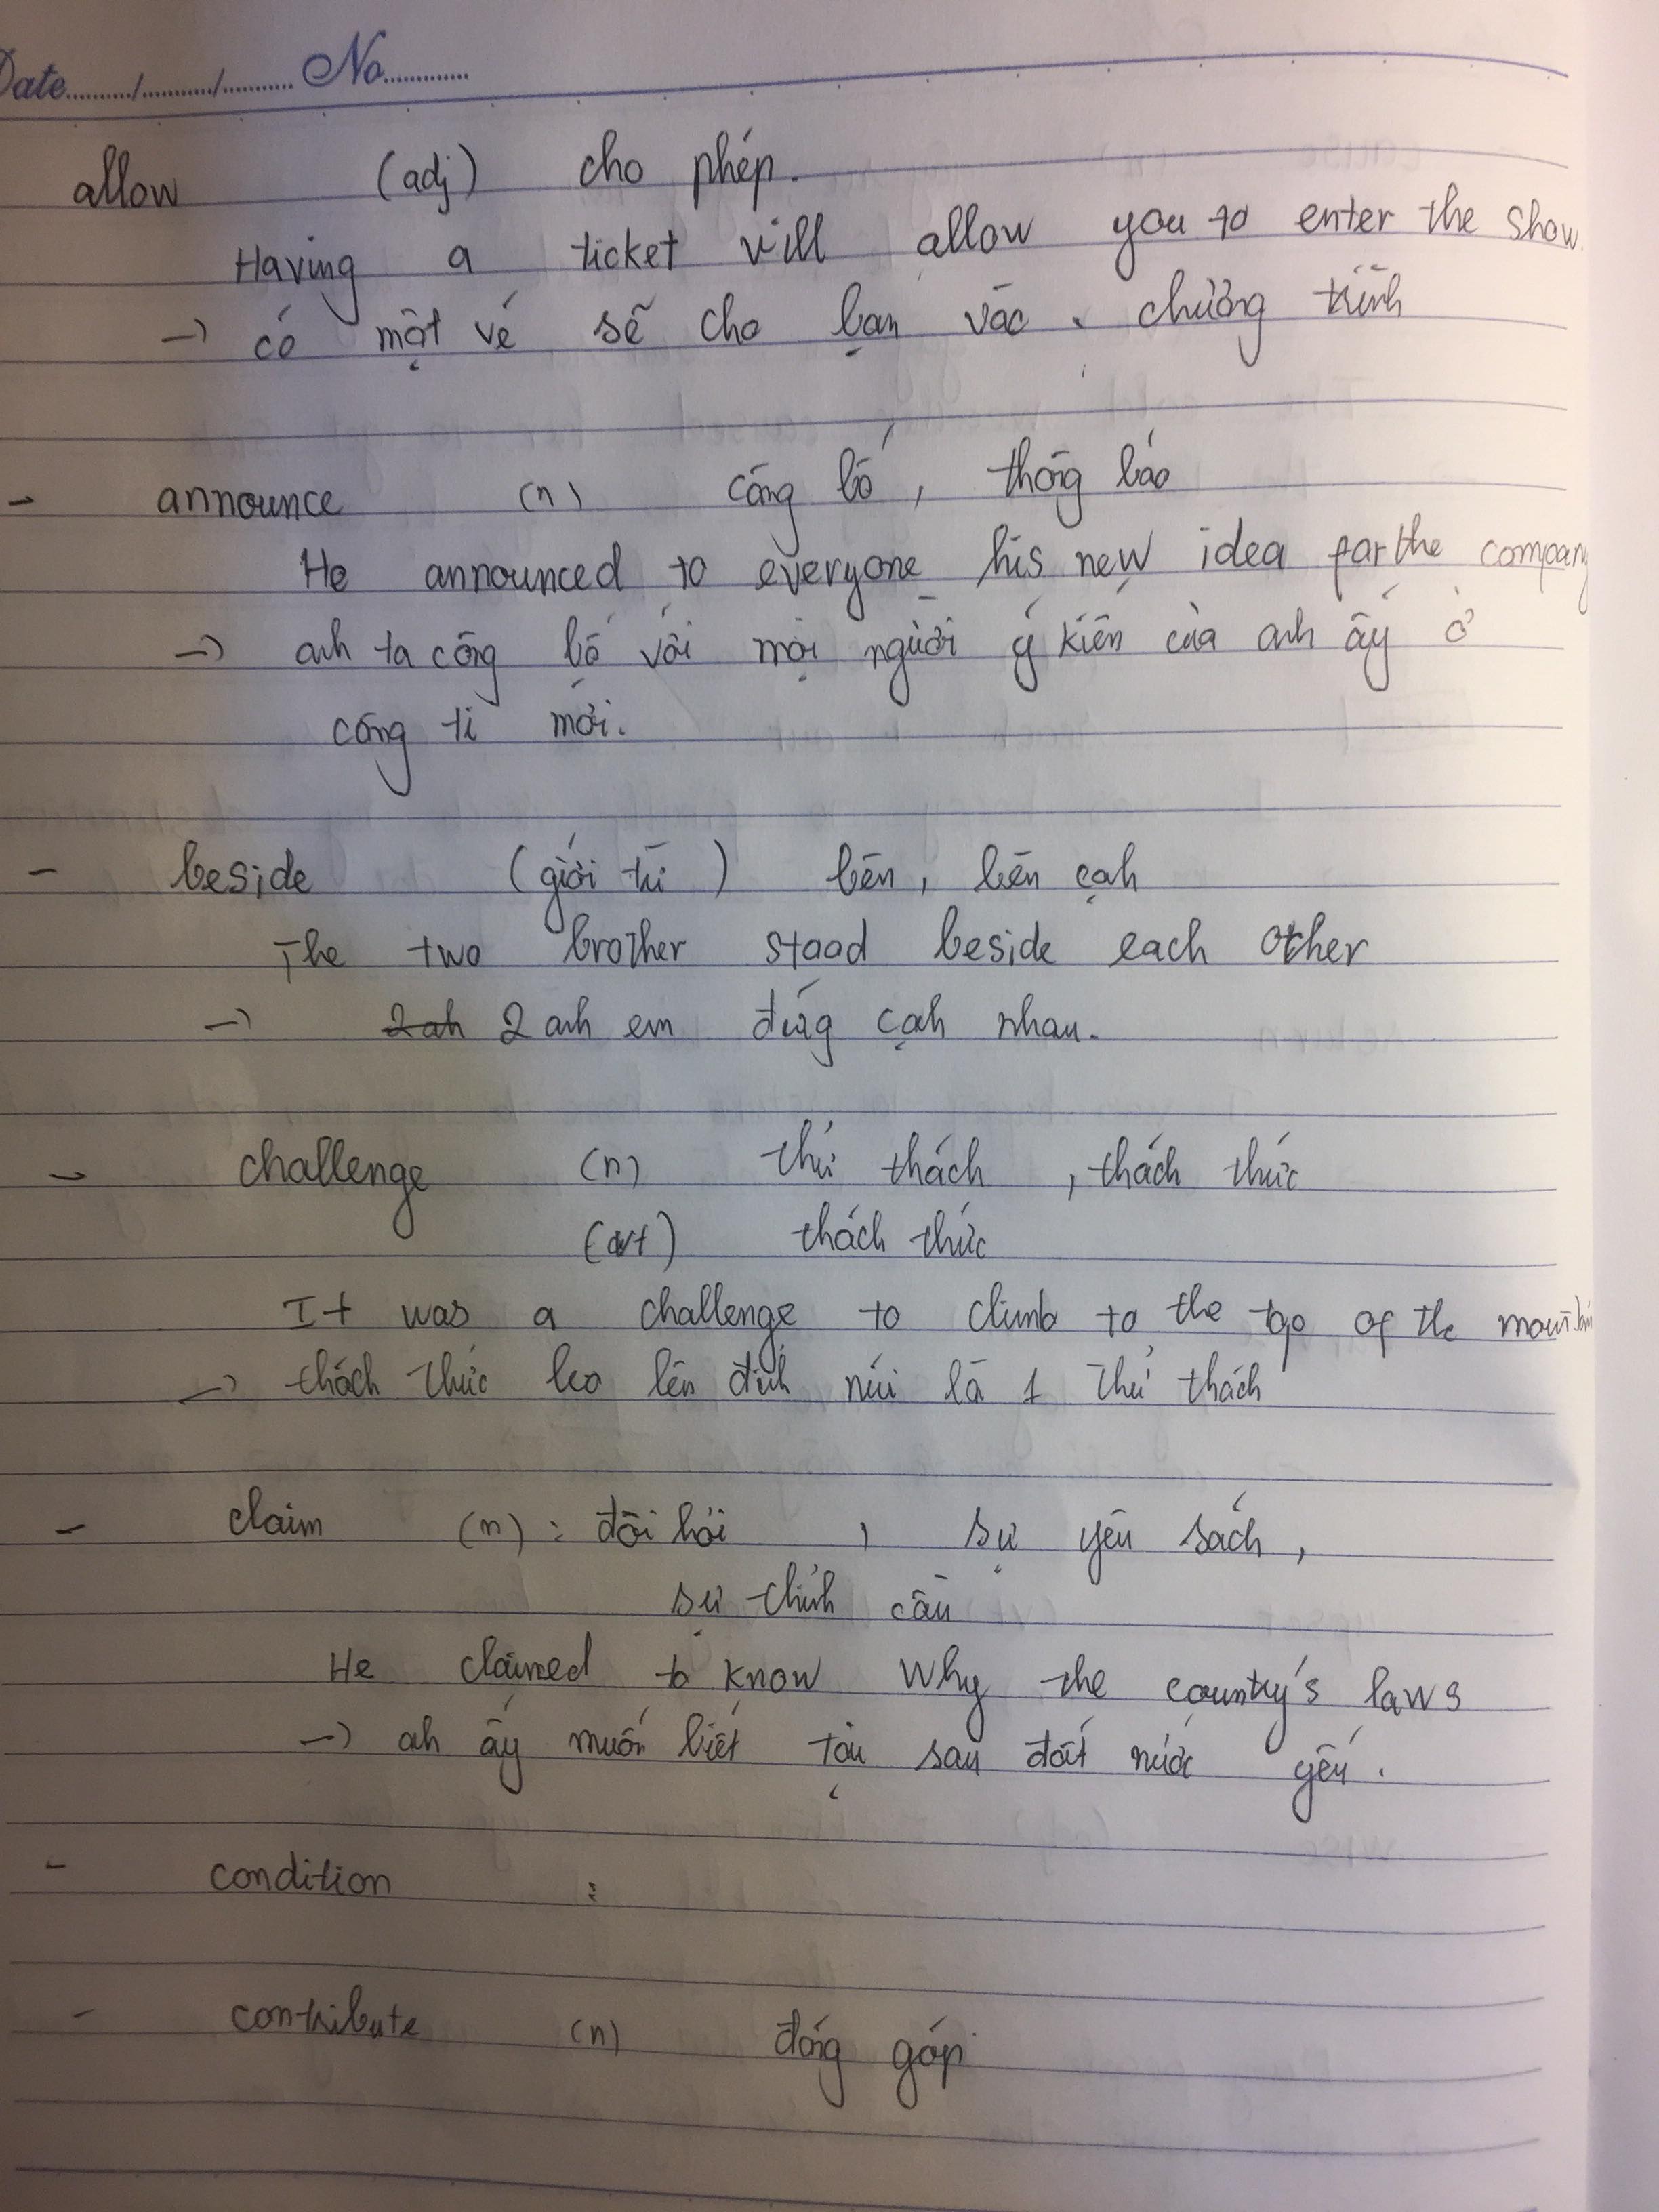 Date........../........../.......... No............
allow (adj) cho phép.
Having a ticket will allow you to enter the show.
→ có một vé sẽ cho bạn vào chương trình
- announce (n) công bố, thông báo
He announced to everyone his new idea for the company
→ anh ta công bố với mọi người ý kiến của anh ấy ở
công ti mới.
- beside (giới từ) bên, bên cạnh
The two brother stood beside each other
→ 2 anh 2 anh em đứng cạnh nhau.
- challenge (n) thử thách, thách thức
(vt) thách thức
It was a challenge to climb to the top of the mountain
→ thách thức leo lên đỉnh núi là 1 thử thách
- claim (n): đòi hỏi, sự yêu sách,
sự thỉnh cầu
He claimed to know why the country's laws
→ anh ấy muốn biết tại sao đất nước yếu.
- condition :
- contribute (n) đóng góp